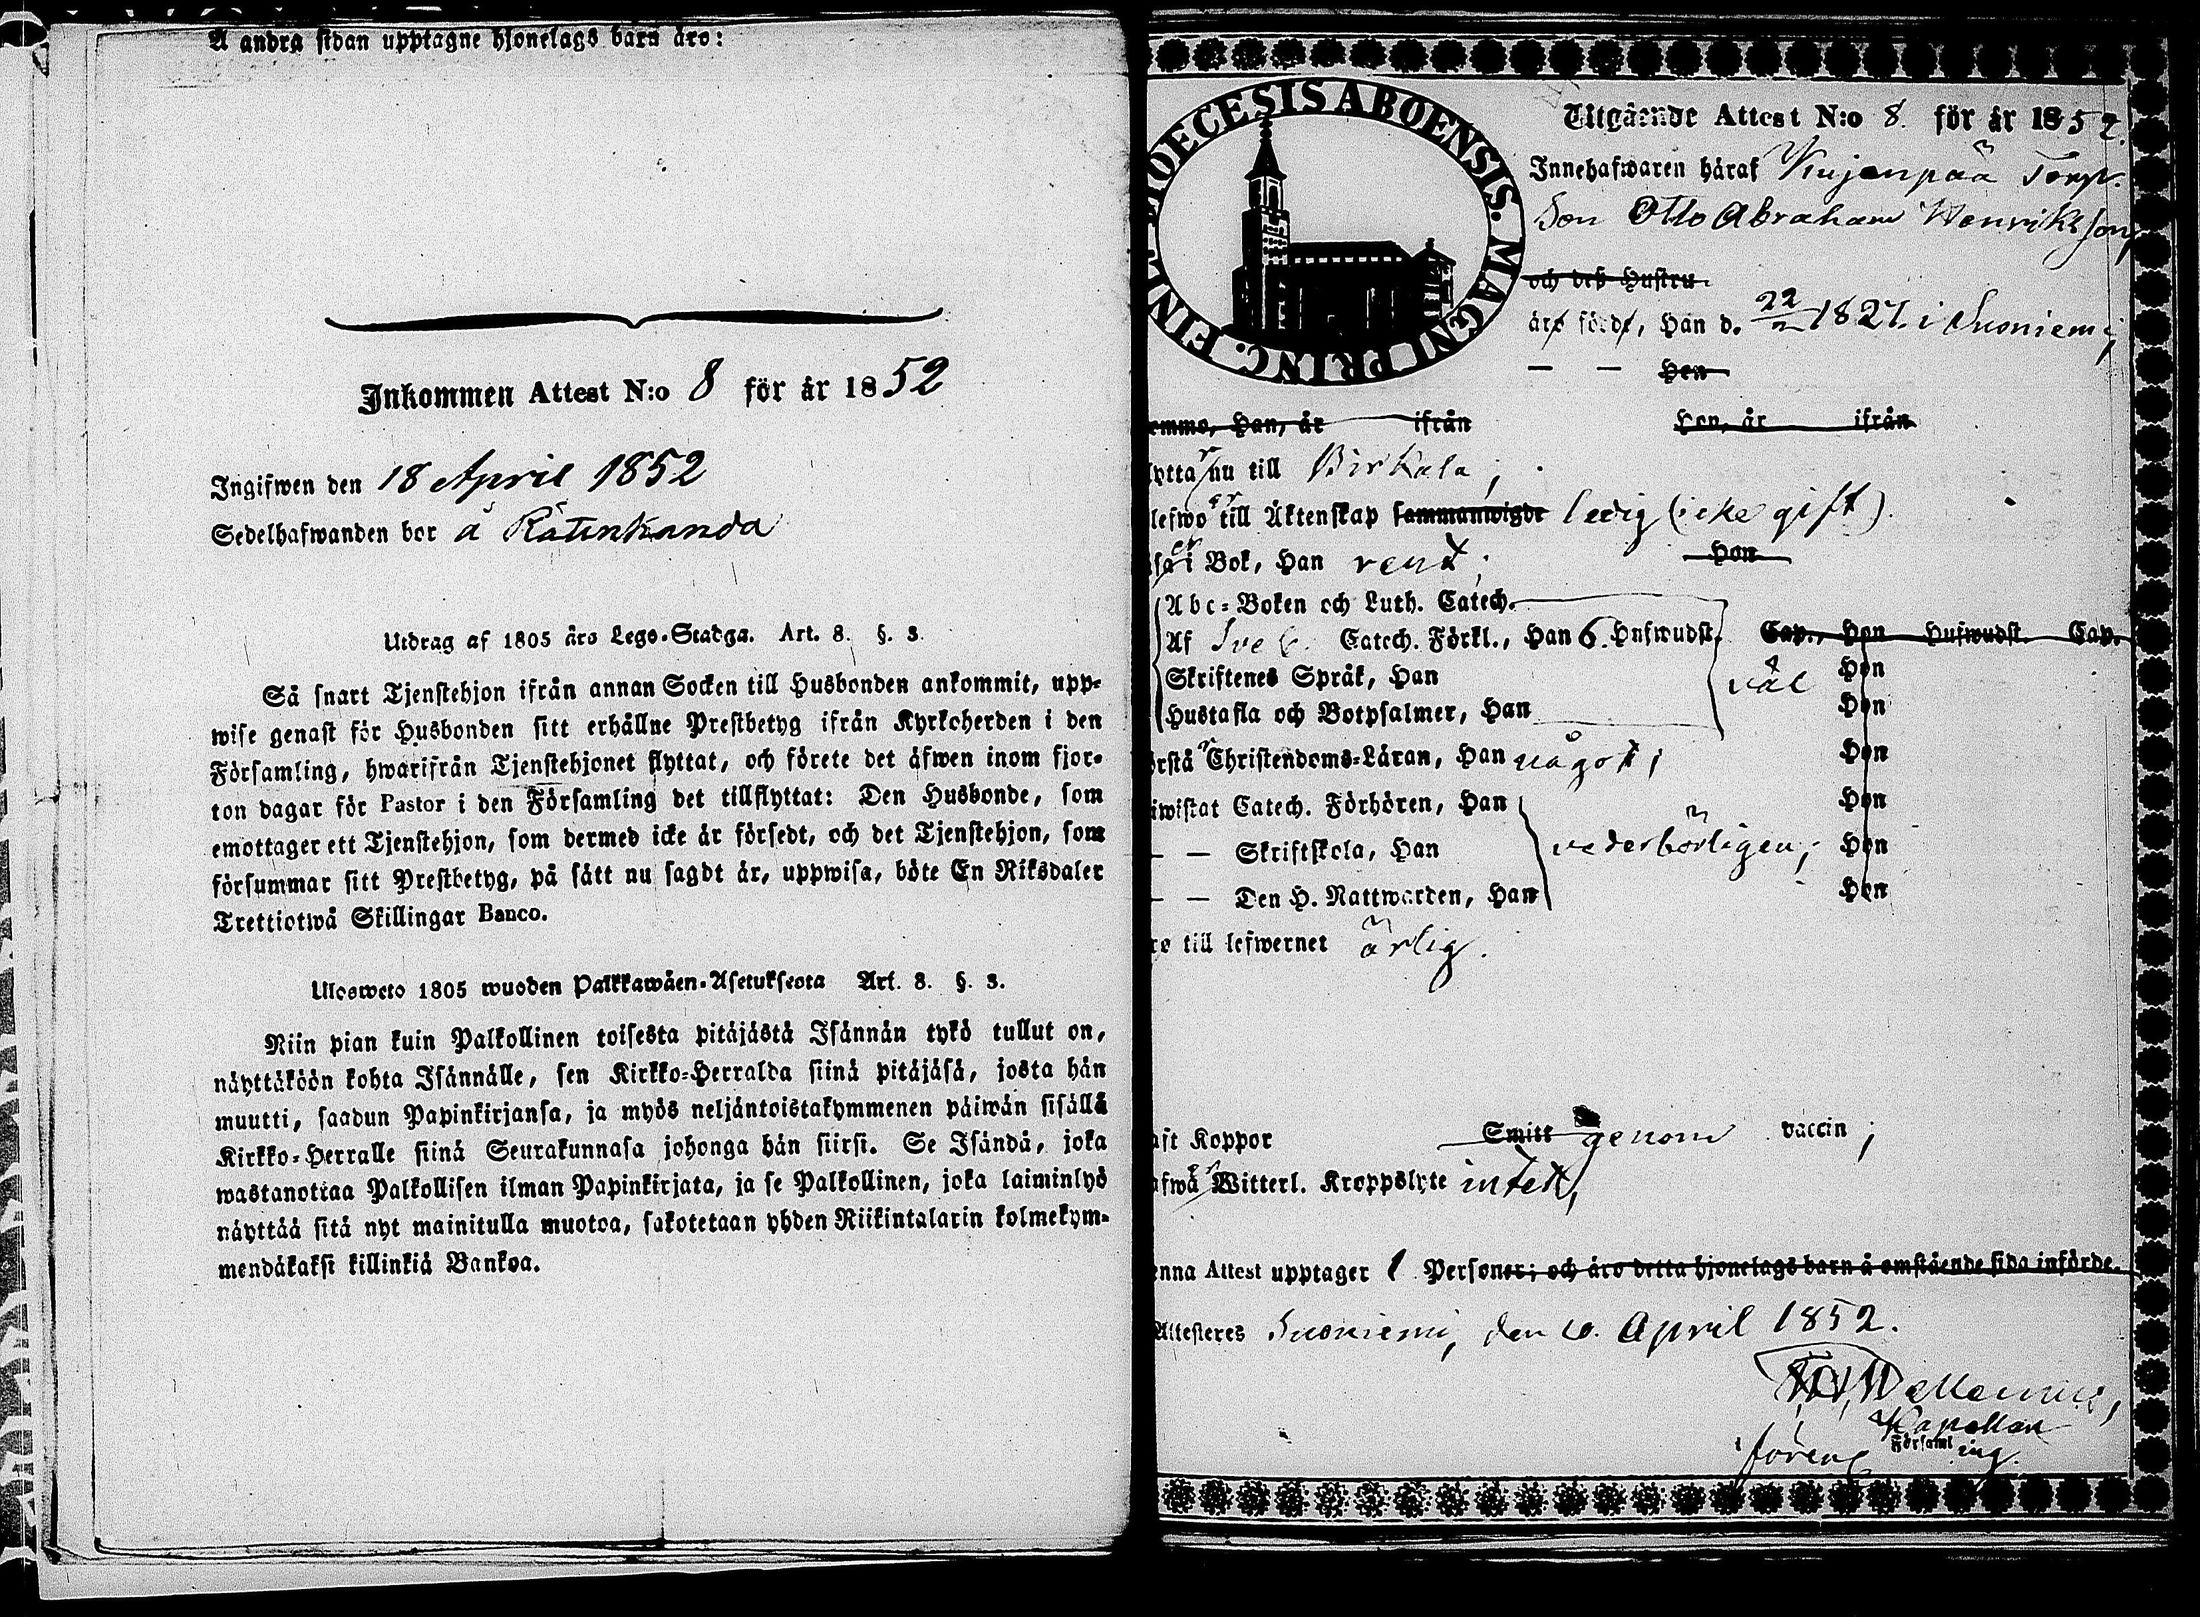 A andra sidan upptagne hjonelags barn äro:
Inkommen Attest N:o 8 för år 1852
Ingifwen den 18 April 1852
Sedelhafwanden bor å
Utdrag af 1805 års Lego-Stadga. Art. 8. §. 3.
Så snart Tjenstehjon ifrån annan Socken till Husbonden ankommit, upp-
wise genast för Husbonden sitt erhållne Prestbetyg ifrån Kyrkoherden i den
Församling, hwarifrån Tjenstehjonet flyttat, och förete det äfwen inom fjor-
ton dagar för Pastor i den Församling det tillflyttat: Den Husbonde, som
emottager ett Tjenstehjon, som dermed icke är försedt, och det Tjenstehjon, som
försummar sitt Prestbetyg, på sätt nu sagdt är, uppwisa, böte En Riksdaler
Trettiotwå Skillingar Banco.
Ulosweto 1805 wuoden Palkkawäen-Asetuksesta Art. 8. §. 3.
Niin pian kuin Palkollinen toisesta pitäjästä Isännän tykö tullut on,
näyttäköön kohta Isännälle, sen Kirkko-Herralda siinä pitäjäsä, josta hän
muutti, saadun Papinkirjansa, ja myös neljäntoistakymmenen päiwän sisällä
Kirkko-Herralle siinä Seurakunnasa johonga hän siirsi. Se Isändä, joka
wastanottaa Palkollisen ilman Papinkirjata, ja se Palkollinen, joka laiminlyö
näyttää sitä nyt mainitulla muotoa, sakotetaan yhden Riikintalarin kolmekym-
mendäkaksi killinkiä Bankoa.
DIOECESIS ABOENSIS. MAGNI PRINC. FINL.
Utgående Attest N:o 8. för år 1852.
Innehafwaren häraf Kujanpää Torp.
Son Otto Abraham Henriksson,
och deß Hustru
äro födde, Han d. 22/ 1827. i Suoniemi,
— — Hon
emmo, Han, år ifrån Hon, år ifrån
lyttar nu till Birkala;
lefwo till Äktenskap sammanwigde ledig (icke gift).
i Bok, Han rent; Hon
Abc-Boken och Luth. Catech.
Af Sveb. Catech. Förkl., Han 6. Hufwudst. Cap., Hon Hufwudst. Cap.
Skriftenes Språk, Han väl Hon
Hustafla och Botpsalmer, Han Hon
rstå Christendoms-Läran, Han något; Hon
iwistat Catech. Förhören, Han Hon
— — Skriftskola, Han vederbörligen; Hon
— — Den H. Nattwarden, Han Hon
ro till lefwernet ärlig.
aft Koppor Smitt genom vaccin;
afwa Witterl. Kroppslyte intet,
enna Attest upptager 1 Personer; och äro detta hjonelags barn å omstående sida införde.
Attesteres Suoniemi, den 10. April 1852.
Kapellan
Församling.